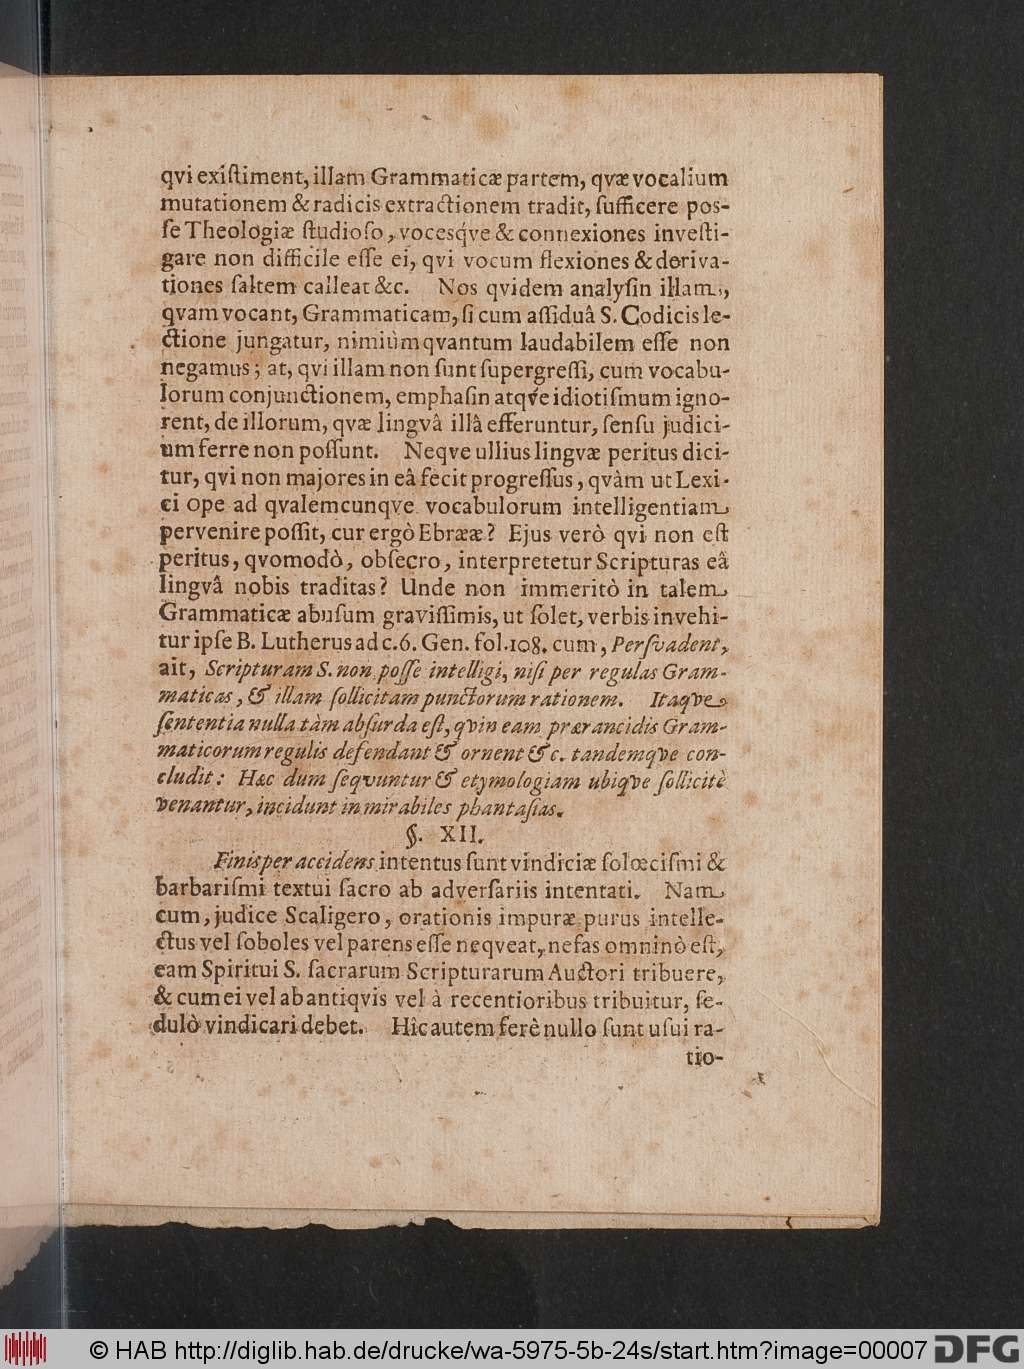 qvi exiſtiment, illam Grammaticæ partem, qvæ vocalium
mutationem & radicis extractionem tradit, ſufficere poſ-
ſe Theologiæ ſtudioſo, vocesq́ve & connexiones inveſti-
gare non difficile eſſe ei, qvi vocum flexiones & deriva-
tiones ſaltem calleat &c. Nos qvidem analyſin illam,
qvam vocant, Grammaticam, ſi cum aſſiduâ S. Codicis le-
ctione jungatur, nimiùm qvantum laudabilem eſſe non
negamus; at, qvi illam non ſunt ſupergreſſi, cum vocabu-
lorum conjunctionem, emphaſin atqv́e idiotiſmum igno-
rent, de illorum, qvæ lingvâ illâ efferuntur, ſenſu judici-
um ferre non poſſunt. Neqve ullius lingvæ peritus dici-
tur, qvi non majores in eâ fecit progreſſus, qvàm ut Lexi-
ci ope ad qvalemcunqve vocabulorum intelligentiam
pervenire poſſit, cur ergò Ebrææ? Ejus verò qvi non eſt
peritus, qvomodò, obſecro, interpretetur Scripturas eâ
lingvâ nobis traditas? Unde non immeritò in talem
Grammaticæ abuſum graviſſimis, ut ſolet, verbis invehi-
tur ipſe B. Lutherus ad c. 6. Gen. fol. 108. cum, Perſvadent,
ait, Scripturam S. non poſſe intelligi, niſi per regulas Gram-
maticas, & illam ſollicitam punctorum rationem. Itaqve
ſententia nulla tàm abſurda eſt, qvin eam prærancidis Gram-
maticorum regulis defendant & ornent &c. tandemqve con-
cludit: Hæc dum ſeqvuntur & etymologiam ubiqve ſollicitè
venantur, incidunt in mirabiles phantaſias.
§. XII.
Finis per accidens intentus ſunt vindiciæ ſolœciſmi &
barbariſmi textui ſacro ab adverſariis intentati. Nam
cum, judice Scaligero, orationis impuræ purus intelle-
ctus vel ſoboles vel parens eſſe neqveat, nefas omninò eſt,
eam Spiritui S. ſacrarum Scripturarum Auctori tribuere,
& cum ei vel ab antiqvis vel à recentioribus tribuitur, ſe-
dulò vindicari debet. Hîc autem ferè nullo ſunt uſui ra-
tio-
© HAB http://diglib.hab.de/drucke/wa-5975-5b-24s/start.htm?image=00007 DFG